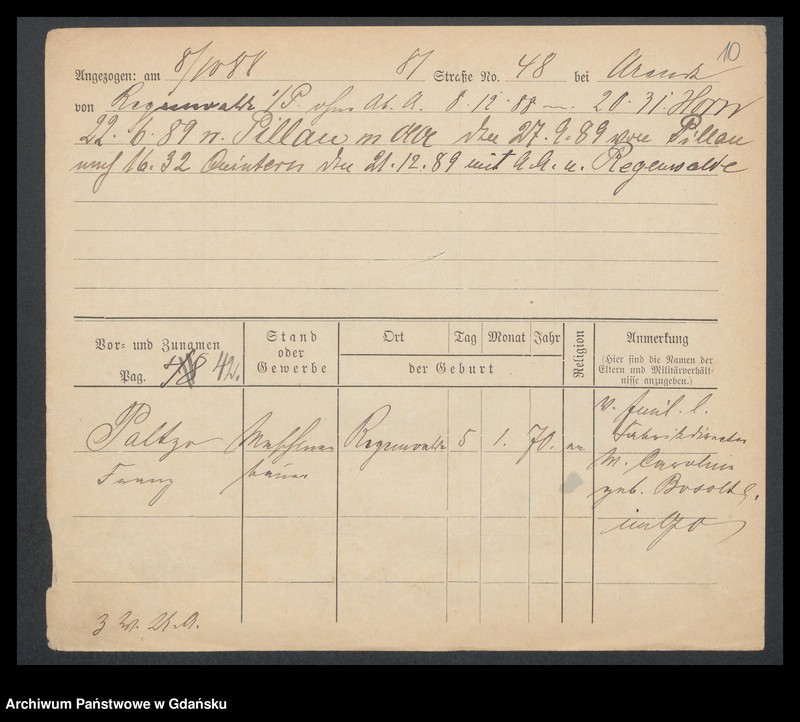 10
Angezogen: am 8/10 88 8/ Straße No. 48 bei Arendt
von Regenwalde i/P. ohne Ab. A. 8.12.88 20.31. Horn
22. 6. 89 n. Pillau m den 27.9.89 von Pillau
nach 16.32 Quintern den 21.12.89 mit A.A. n. Regenwalde
Vor- und Zunamen
Pag. 48 42.
Stand
oder
Gewerbe
Ort Tag Monat Jahr
der Geburt
Religion
Anmerkung
(Hier sind die Namen der
Eltern und Militärverhält-
nisse anzugeben.)
Paltzo Maschinen Regenwalde 5 1. 70. ev.
Franz bauer
V. Emil. l.
Fabrikdirector
M. Caroline
geb.
3
Archiwum Państwowe w Gdańsku